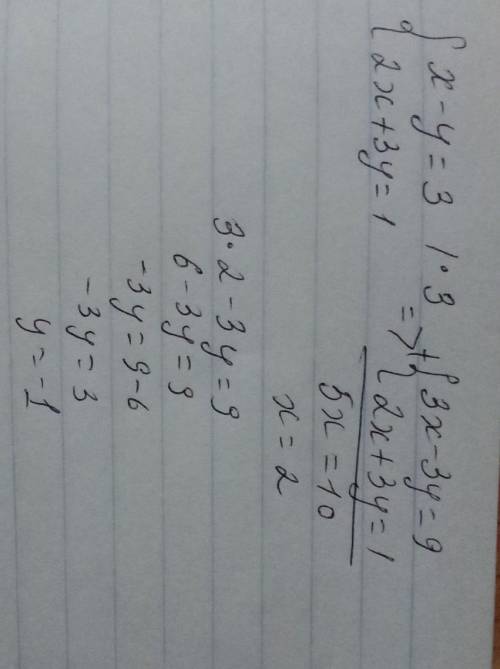 { x - y = 3 | · 3 => + { 3x - 3y = 9
2x + 3y = 1 2x + 3y = 1
5x = 10
x = 2
3 · 2 - 3y = 9
6 - 3y = 9
-3y = 9 - 6
-3y = 3
y = -1